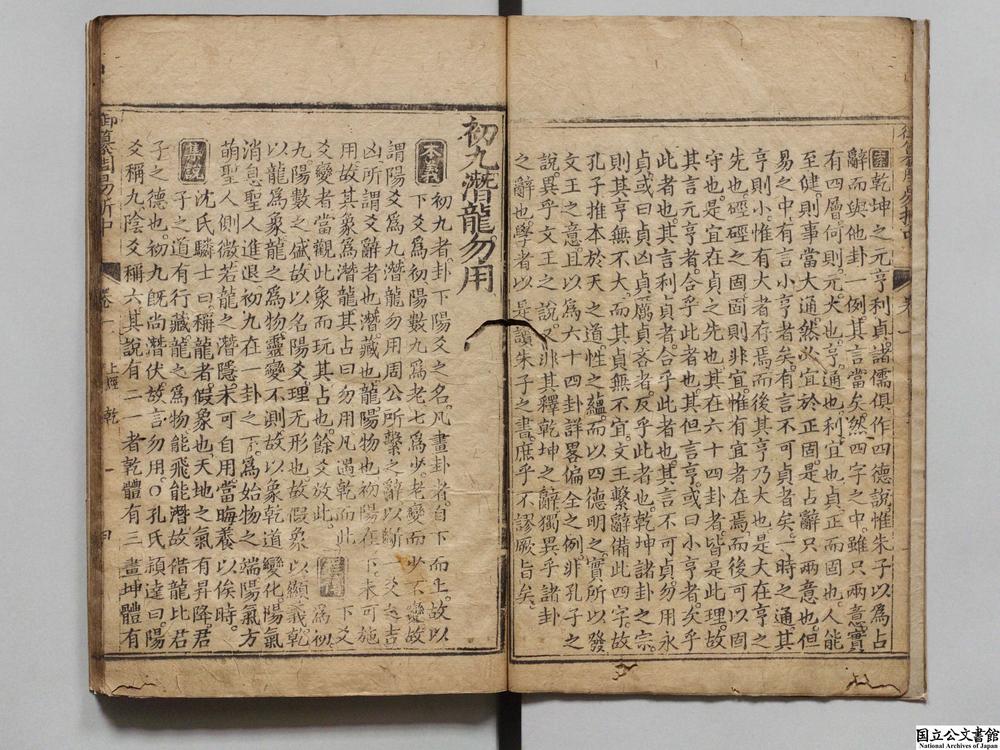 案乾坤之元亨利貞諸儒俱作四德說惟朱子以為占
辭而與他卦一例其言當矣然四字之中雖只兩意實
有四層何則元大也亨通也利宜也貞正而固也人能
至健則事當大通然必宜於正固是占辭只兩意也但
易之中有言小亨者矣有言不可貞者矣一時之通其
亨則小惟有大者存焉而後其亨乃大也是大在亨之
先也硜硜之固固則非宜惟有宜者在焉而後可以固
守也是宜在貞之先也其在六十四卦者皆是此理故
其言元亨者合乎此者也其但言亨或曰小亨者矣乎
此者也其言利貞者合乎此者也其言不可貞勿用永
貞或曰貞凶貞厲貞吝者反乎此者也乾坤諸卦之宗
則其亨無不大而其貞無不宜文王繫辭備此四字故
孔子推本於天之道性之蘊而以四德明之實所以發
文王之意且以為六十四卦詳畧偏全之例非孔子之
說異乎文王之說又非其釋乾坤之辭獨異乎諸卦
之辭也學者以是讀朱子之書庶乎不謬厥旨矣
初九潛龍勿用
本義 初九者卦下陽爻之名凡畫卦者自下而上故以
下爻為初陽數九為老七為少老變而少不變故
謂陽爻為九潛龍勿用周公所繫之辭以斷一爻之吉
凶所謂爻辭者也潛藏也龍陽物也初陽在下未可施
用故其象為潛龍其占曰勿用凡遇乾而此爻
變者當觀此象而玩其占也餘爻放此 為初
九陽數之盛故以名陽爻理无形也故假象以顯義乾
以龍為象龍之為物靈變不測故以象乾道變化陽氣
消息聖人進退初九在一卦之下為始物之端陽氣方
萌聖人側微若龍之潛隱未可自用當晦養以俟時
集說 沈氏驎士曰稱龍者假象也天地之氣有昇降君
子之道有行藏龍之為物能飛能潛故借龍比君
子之德也初九既尚潛伏故言勿用○孔氏穎達曰陽
爻稱九陰爻稱六其說有二一者乾體有三畫坤體有
御纂周易折中
卷一
上經 乾
一
国立公文書館
National Archives of Japan